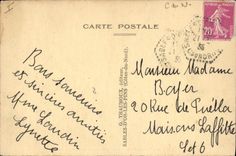 C. du N.
CARTE POSTALE
Bons souvenirs
et sincères amitiés
Mme Lourdin
Lynette
SABLES-D'OR-LES-PINS (Côtes-du-Nord)
20
Monsieur Madame
Boyer
20 Rue de Puebla
Maisons Laffitte
S et O